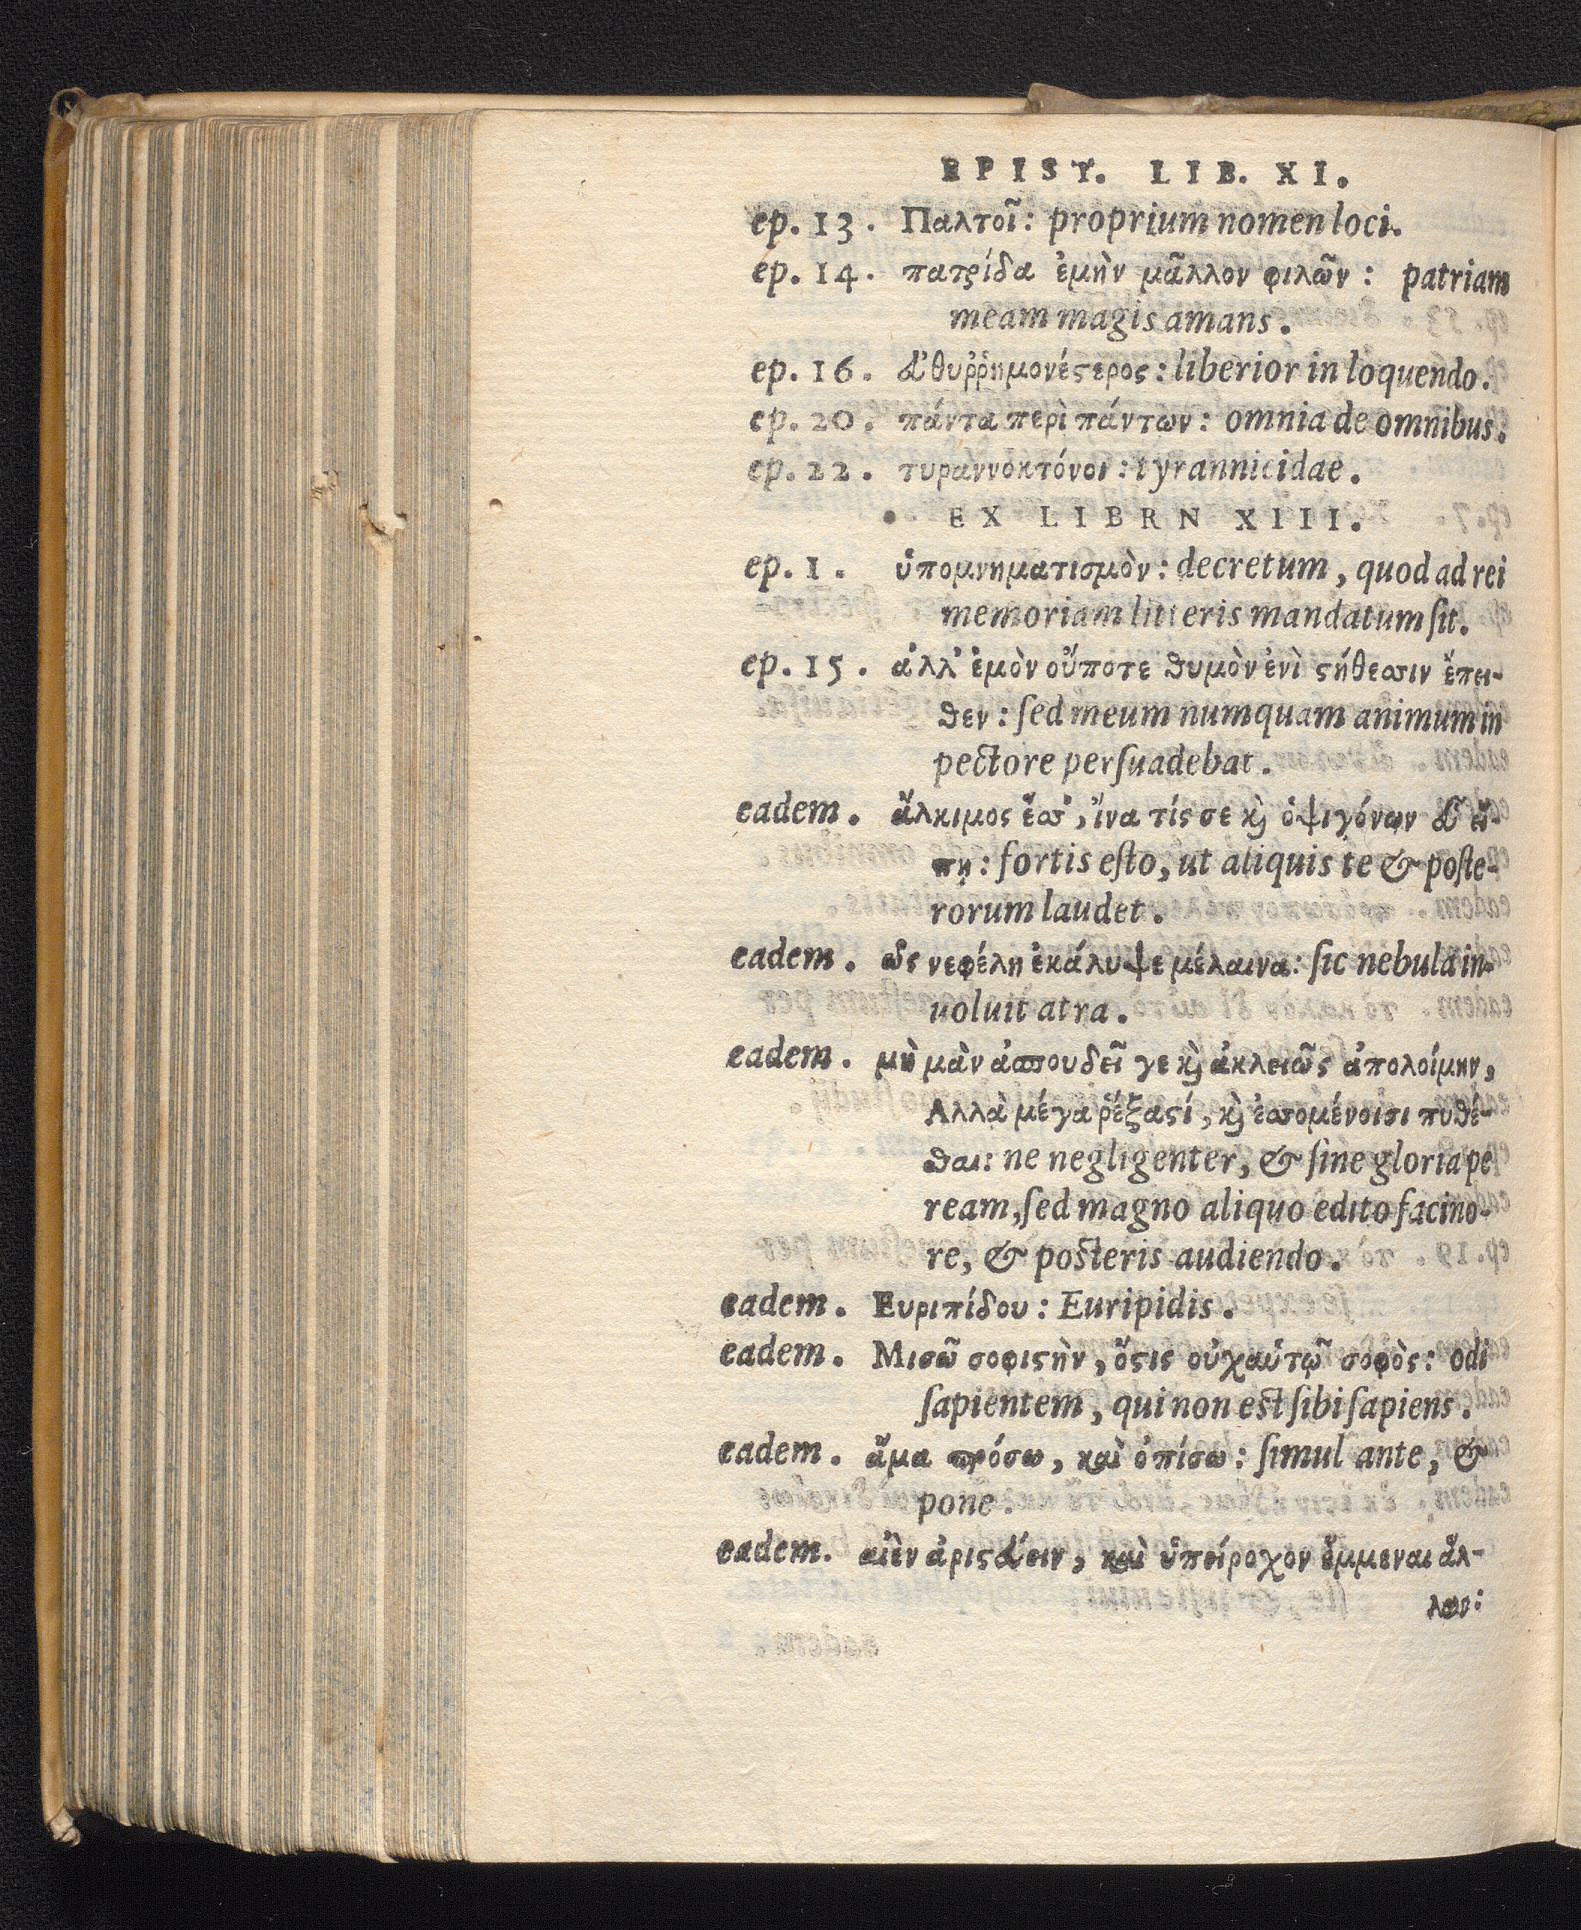 EPIST. LIB. XI.
ep. 13. Παλτοῖ: proprium nomen loci.
ep. 14. πατρίδα ἐμὴν μᾶλλον φιλῶν: patriam
meam magis amans.
ep. 16. ἐυθυῤῥημονέστερος: liberior in loquendo.
ep. 20. πάντα περὶ πάντων: omnia de omnibus.
ep. 22. τυραννοκτόνοι: tyrannicidae.
EX LIBRN XIII.
ep. 1. ὑπομνηματισμὸν: decretum, quod ad rei
memoriam litteris mandatum ſit.
ep. 15. ἀλλ' ἐμὸν οὔποτε θυμὸν ἐνὶ στήθεσσιν ἔπει-
θεν: ſed meum numquam animum in
pectore perſuadebat.
eadem. ἄλκιμος ἔσσ', ἵνα τίς σε καὶ ὀψιγόνων ἐυ εἴ-
πῃ: fortis eſto, ut aliquis te & poſte-
rorum laudet.
eadem. ὣς νεφέλη ἐκάλυψε μέλαινα: ſic nebula in-
uoluit atra.
eadem. μὴ μὰν ἀσπουδεῖ γε καὶ ἀκλειῶς ἀπολοίμην,
Αλλὰ μέγα ῥέξας τί, καὶ ἐσσομένοισι πυθέ-
σθαι: ne negligenter, & ſine gloria pe
ream, ſed magno aliquo edito facino-
re, & posteris audiendo.
eadem. Ευριπίδου: Euripidis.
eadem. Μισῶ σοφιστὴν, ὅστις οὐχ αὑτῷ σοφὸς: odi
ſapientem, qui non est ſibi ſapiens.
eadem. ἅμα πρόσω, καὶ ὀπίσω: ſimul ante, &
pone.
eadem. αἰὲν ἀριστεύειν, καὶ ὑπείροχον ἔμμεναι ἄλ-
λων: